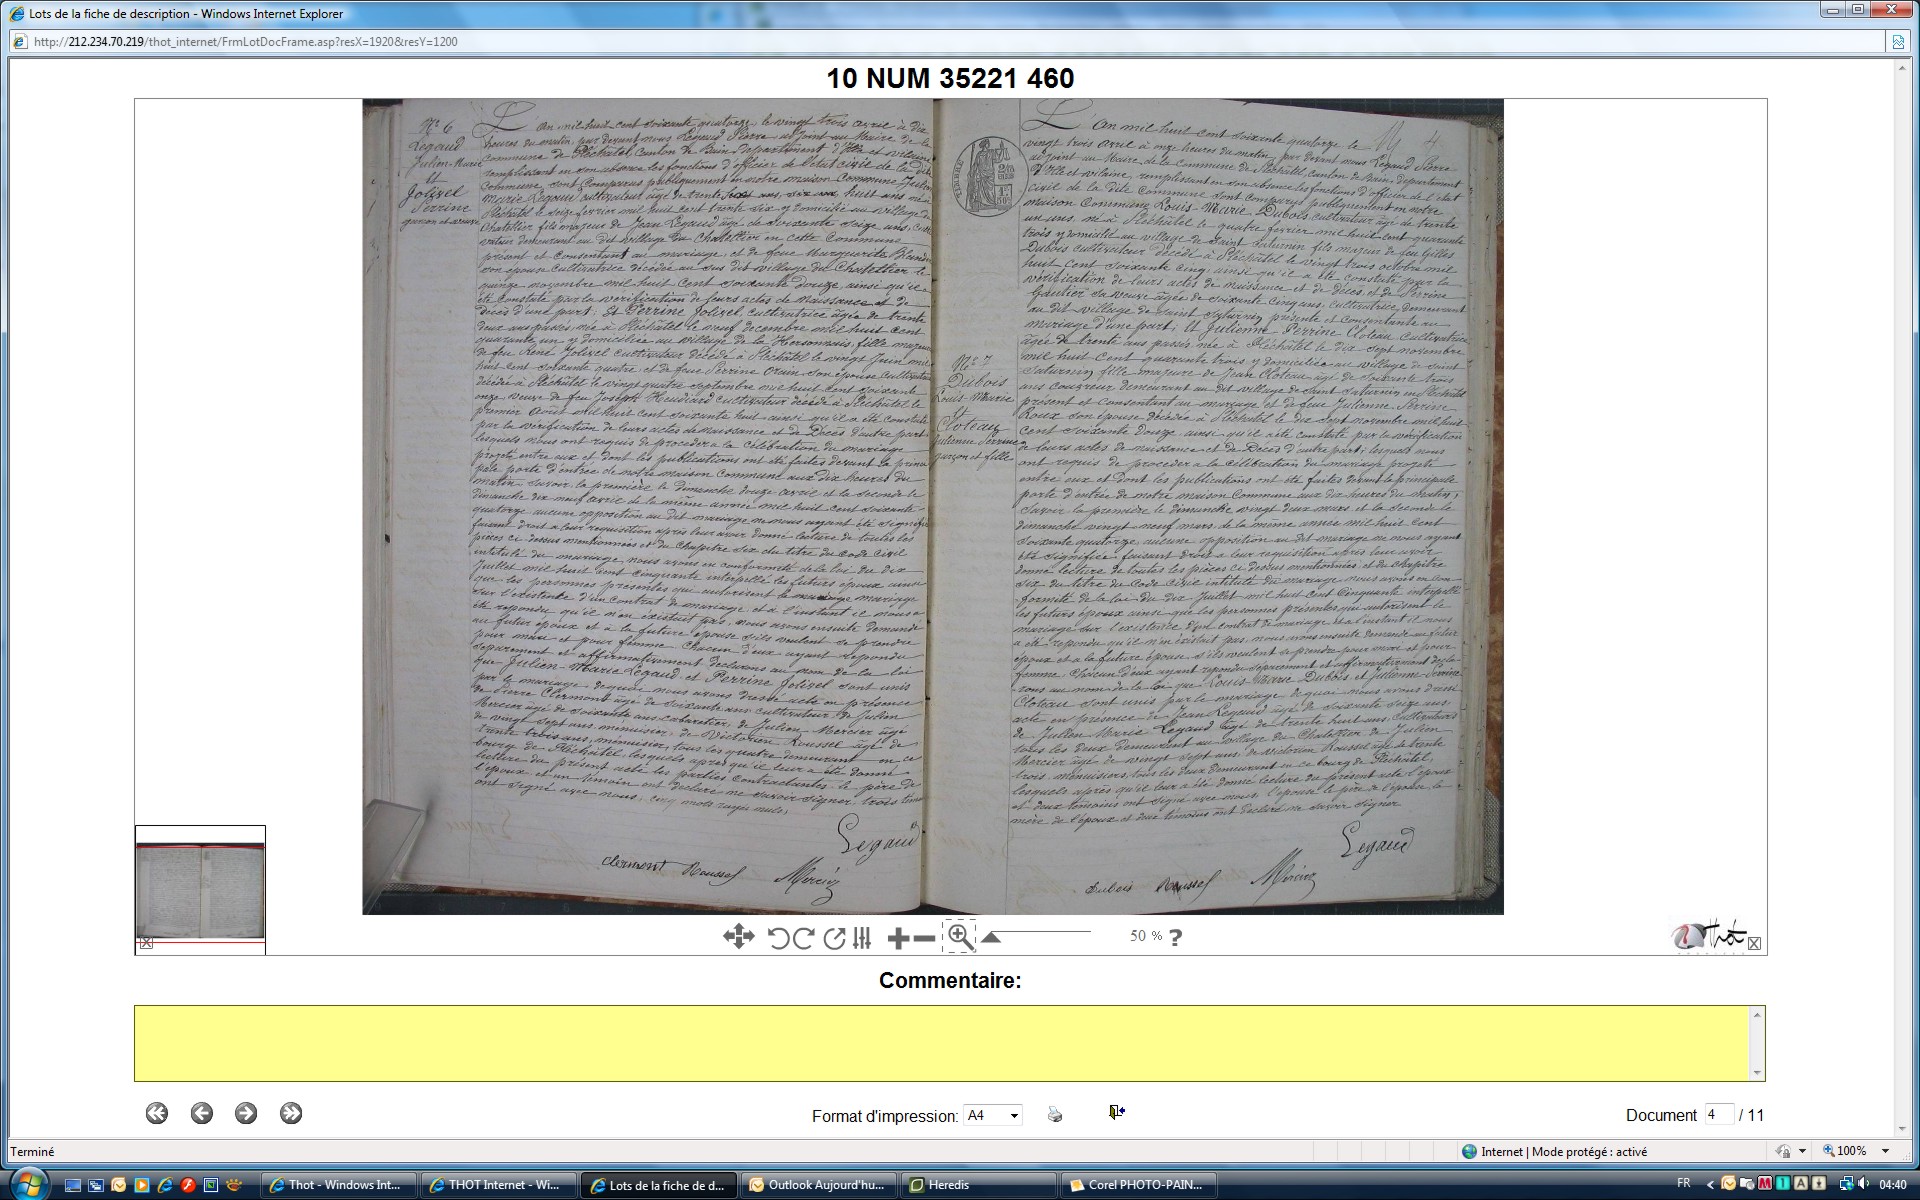 Lots de la fiche de description - Windows Internet Explorer
http://212.234.70.219/thot_internet/FrmLotDocFrame.asp?resX=1920&resY=1200
10 NUM 35221 460
N° 6
Legaud
Julien Marie
et
Jolivel
Perrine
garçon et veuve
L'an mil huit cent soixante quatorze le vingt trois avril à dix
heures du matin, par devant nous Legaud Pierre adjoint au Maire de la
commune de Pléchâtel, canton de Bain, département d'Ille et Vilaine
remplissant en son absence les fonctions d'officier de l'état civil de la dite
Commune, sont comparus publiquement en notre maison Commune Julien
Marie Legaud cultivateur âgé de trente huit ans né à
Pléchâtel le seize février mil huit cent trente six y domicilié au village du
Chatellier fils majeur de Jean Legaud âgé de soixante seize ans, culti
vateur demeurant au dit village du Chatellier en cette Commune
présent et consentant au mariage, et de feue Marguerite
son épouse cultivatrice décédée au sus dit village du Chatellier le
quinze novembre mil huit cent soixante douze, ainsi qu'il a
été constaté par la vérification de leurs actes de naissance et de
décès d'une part; Et Perrine Jolivel cultivatrice âgée de trente
deux ans passés née à Pléchâtel le neuf décembre mil huit cent
quarante un y domiciliée au village de la fille majeure
de feu René Jolivel cultivateur décédé à Pléchâtel le vingt Juin mil
huit cent soixante quatre, et de feue Perrine son épouse cultivatrice
décédée à Pléchâtel le vingt quatre septembre mil huit cent soixante
onze, veuve de feu Joseph Heudiard cultivateur décédé à Pléchâtel le
premier Août mil huit cent soixante huit ainsi qu'il a été constaté
par la vérification de leurs actes de naissance et de Décès d'autre part
lesquels nous ont requis de procéder à la célébration du mariage
projeté entre eux et dont les publications ont été faites devant la princi
pale porte d'entrée de notre maison commune aux dix heures du
matin, savoir la première le dimanche douze avril et la seconde le
dimanche dix neuf avril de la même année mil huit cent soixante
quatorze aucune opposition au dit mariage ne nous ayant été signifiée
faisant droit à leur requisition après leur avoir donné lecture de toutes les
pièces ci dessus mentionnées et du chapitre six du titre du code civil
intitulé du mariage, nous avons en conformité de la loi du dix
Juillet mil huit cent cinquante interpellé les futurs époux ainsi
que les personnes présentes qui autorisent le mariage
sur l'existence d'un contrat de mariage et à l'instant il nous a
été répondu qu'il n'en existait pas, nous avons ensuite demandé
au futur époux et à la future épouse s'ils veulent se prendre
pour mari et pour femme chacun d'eux ayant répondu
séparément et affirmativement déclarons au nom de la loi
que Julien Marie Legaud et Perrine Jolivel sont unis
par le mariage, de quoi nous avons dressé acte en présence
de Pierre Clermont âgé de soixante ans cultivateur, de Julien
Mercier âgé de soixante ans cabaretier, de Julien Mercier âgé
de vingt sept ans, menuisier, de Victorien Roussel âgé de
trente trois ans, menuisier, tous les quatre demeurant en ce
bourg de Pléchâtel, lesquels après qu'il leur a été donné
lecture du présent acte les parties contractantes le père de
l'époux et un témoin ont déclaré ne savoir signer trois témoins
ont signé avec nous, cinq mots rayés nuls,
Legaud
Clermont Roussel Mercier
TIMBRE
N° 7
Dubois
Louis-Marie
et
Cloteau
Julienne Perrine
garçon et fille
4
L'an mil huit cent soixante quatorze le
vingt trois avril à onze heures du matin, par devant nous Legaud Pierre
adjoint au Maire de la Commune de Pléchâtel, canton de Bain, département
d'Ille et vilaine, remplissant en son absence les fonctions d'officier de l'état
civil de la dite Commune sont comparus publiquement en notre
maison Commune Louis-Marie Dubois cultivateur âgé de trente
un ans, né à Pléchâtel le quatre février mil huit cent quarante
trois y domicilié au village de Saint Saturnin fils majeur de feu Gilles
Dubois cultivateur décédé à Pléchâtel le vingt trois octobre mil
huit cent soixante cinq, ainsi qu'il a été constaté par la
vérification de leurs actes de naissance et de décès et de Perrine
Gautier sa veuve âgée de soixante cinq ans, cultivatrice demeurant
au dit village de Saint Saturnin présente et consentante au
mariage d'une part; Et Julienne Perrine Cloteau cultivatrice
âgée de trente ans passés née à Pléchâtel le dix sept novembre
mil huit cent quarante trois y domiciliée au village de Saint
Saturnin fille majeure de Jean Cloteau âgé de soixante trois
ans couvreur demeurant au dit village de Saint Saturnin en Pléchâtel
présent et consentant au mariage et de feue Julienne Perrine
Roux son épouse décédée à Pléchâtel le dix sept novembre mil huit
cent soixante douze, ainsi qu'il a été constaté par la vérification
de leurs actes de naissance et de Décès d'autre part; lesquels nous
ont requis de procéder à la célébration du mariage projeté
entre eux et dont les publications ont été faites devant la principale
porte d'entrée de notre maison commune aux dix heures du matin,
savoir la première le dimanche vingt deux mars et la seconde le
dimanche vingt neuf mars de la même année mil huit cent
soixante quatorze, aucune opposition au dit mariage ne nous ayant
été signifiée, faisant droit à leur requisition après leur avoir
donné lecture de toutes les pièces ci dessus mentionnées et du chapitre
six du titre du Code civil intitulé du mariage nous avons en con
formité de la loi du dix Juillet mil huit cent Cinquante interpellé
les futurs époux ainsi que les personnes présentes qui autorisent le
mariage sur l'existence d'un contrat de mariage et à l'instant il nous
a été répondu qu'il n'en existait pas, nous avons ensuite demandé au futur
époux et à la future épouse s'ils veulent se prendre pour mari et pour
femme chacun d'eux ayant répondu séparément et affirmativement décla
rons au nom de la loi que Louis-Marie Dubois et Julienne-Perrine
Cloteau sont unis par le mariage de quoi nous avons dressé
acte en présence de Jean Legaud âgé de soixante seize ans,
de Julien Marie Legaud âgé de trente huit ans, cultivateurs
tous les deux demeurant au village du Chatellier de Julien
Mercier âgé de vingt sept ans, de Victorien Roussel âgé de trente
trois, menuisiers, tous les deux demeurant en ce bourg de Pléchâtel,
lesquels après qu'il leur a été donné lecture du présent acte l'époux
et deux témoins ont signé avec nous, l'épouse le père de l'épouse la
mère de l'époux et deux témoins ont déclaré ne savoir signer
Legaud
Dubois Roussel Mercier
50 % ?
Thot
Commentaire:
Format d'impression: A4
Document 4 / 11
Terminé
Internet | Mode protégé : activé
100%
Thot - Windows Int...
THOT Internet - Wi...
Lots de la fiche de d...
Outlook Aujourd'hu...
Heredis
Corel PHOTO-PAIN...
FR
04:40